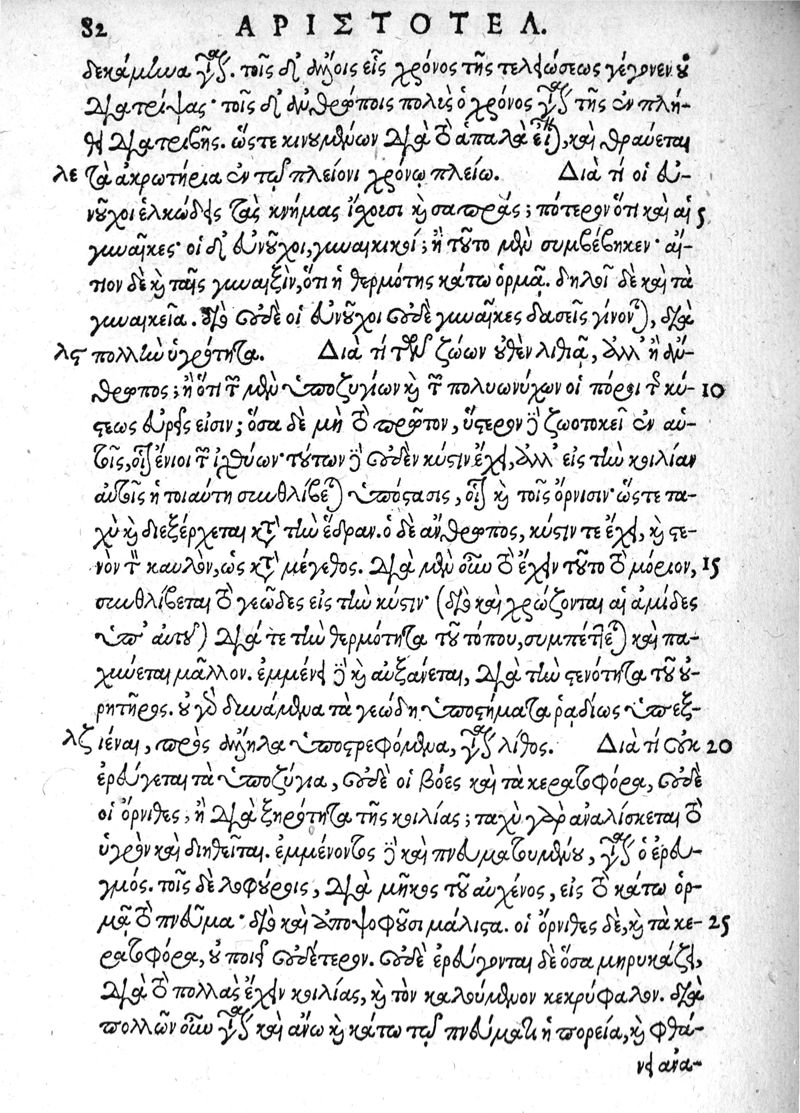 82 ΑΡΙΣΤΟΤΕΛ.
δεκάμηνα γίνεται. τοῖς δ' ἄλλοις εἷς χρόνος τῆς τελειώσεως γέγονεν ὁ
διατρίψας· τοῖς δ' ἀνθρώποις πολὺς ὁ χρόνος γίνεται τῆς ἐν πλή-
θει διατριβῆς. ὥστε κινουμένων διὰ τὸ ἁπαλὰ εἶναι, καὶ θραύεται
λε τὰ ἀκρωτήρια ἐν τῷ πλείονι χρόνῳ πλείω. Διὰ τί οἱ εὐ-
νοῦχοι ἑλκώδεις τὰς κνήμας ἴσχουσι καὶ σαπράς; πότερον ὅτι καὶ αἱ 5
γυναῖκες· οἱ δ' εὐνοῦχοι, γυναικικοί; ἢ τοῦτο μὲν συμβέβηκεν· αἴ-
τιον δὲ καὶ ταῖς γυναιξὶν, ὅτι ἡ θερμότης κάτω ὁρμᾷ. δηλοῖ δὲ καὶ τὰ
γυναικεῖα. διὸ οὐδὲ οἱ εὐνοῦχοι οὐδὲ γυναῖκες δασεῖς γίνονται, διὰ
λϛ πολλὴν ὑγρότητα. Διὰ τί τῶν ζώων οὐθὲν λιθιᾷ, ἀλλ' ἢ ἄν-
θρωπος; ἢ ὅτι τῶν μὲν ὑποζυγίων καὶ τῶν πολυωνύχων οἱ πόροι τῆς κύ- 10
στεως εὐρεῖς εἰσιν; ὅσα δὲ μὴ τὸ πρῶτον, ὕστερον δὲ ζωοτοκεῖ ἐν αὑ-
τοῖς, οἷον ἔνιοι τῶν ἰχθύων· τούτων δὲ οὐδὲν κύστιν ἔχει, ἀλλ' εἰς τὴν κοιλίαν
αὐτοῖς ἡ τοιαύτη συνθλίβεται ὑπόστασις, οἷον καὶ τοῖς ὄρνισιν· ὥστε τα-
χὺ καὶ διεξέρχεται κατὰ τὴν ἕδραν. ὁ δὲ ἄνθρωπος, κύστιν τε ἔχει, καὶ στε-
νὸν τὸν καυλὸν, ὡς κατὰ μέγεθος. διὰ μὲν οὖν τὸ ἔχειν τοῦτο τὸ μόριον, 15
συνθλίβεται τὸ γεῶδες εἰς τὴν κύστιν· (διὸ καὶ χρώζονται αἱ ἀμίδες
ὑπ' αὐτοῦ) διά τε τὴν θερμότητα τοῦ τόπου, συμπέττεται καὶ πα-
χύνεται μᾶλλον. ἐμμένει δὲ καὶ αὐξάνεται, διὰ τὴν στενότητα τοῦ οὐ-
ρητῆρος. οὐ γὰρ δυνάμενα τὰ γεώδη ὑποστήματα ῥᾳδίως ὑπεξ-
λζ ιέναι, πρὸς ἄλληλα ὑποστρεφόμενα, γίνεται λίθος. Διὰ τί οὐκ 20
ἐρεύγεται τὰ ὑποζύγια, οὐδὲ οἱ βόες καὶ τὰ κερατοφόρα, οὐδὲ
οἱ ὄρνιθες, ἢ διὰ ξηρότητα τῆς κοιλίας; ταχὺ γὰρ ἀναλίσκεται τὸ
ὑγρὸν καὶ διηθεῖται. ἐμμένοντος δὲ καὶ πνευματουμένου, γίνεται ὁ ἐρευ-
γμός. τοῖς δὲ λοφούροις, διὰ μῆκος τοῦ αὐχένος, εἰς τὸ κάτω ὁρ-
μᾷ τὸ πνεῦμα· διὸ καὶ ἀποψοφοῦσι μάλιστα. οἱ ὄρνιθες δὲ, καὶ τὰ κε- 25
ρατοφόρα, οὐ ποιεῖ οὐδέτερον. οὐδὲ ἐρεύγονται δὲ ὅσα μηρυκάζει,
διὰ τὸ πολλὰς ἔχειν κοιλίας, καὶ τὸν καλούμενον κεκρύφαλον. διὰ
πολλῶν οὖν γίνεται καὶ ἄνω καὶ κάτω τῷ πνεύματι ἡ πορεία, καὶ φθά-
νει ἀνα-